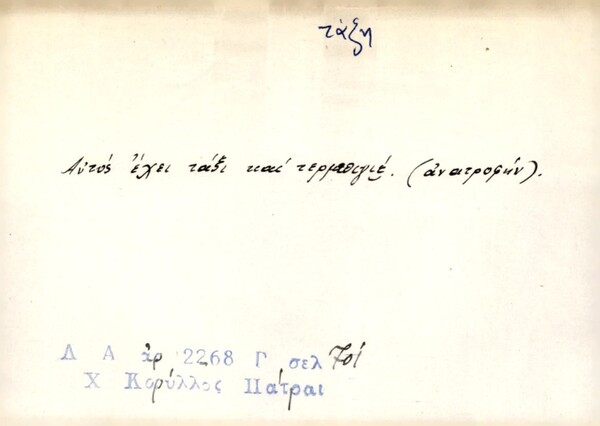 τάξη
Αὐτός ἔχει τάξι καί τερμπιγιέ. (ἀνατροφήν).
Δ Α ἀρ 2268 Γ σελ
Χ Κορύλλος Πάτραι